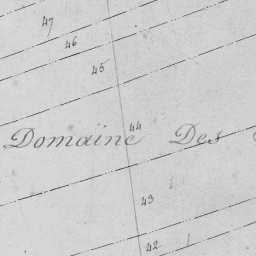 47
46
45
44
Domaine Des
43
42